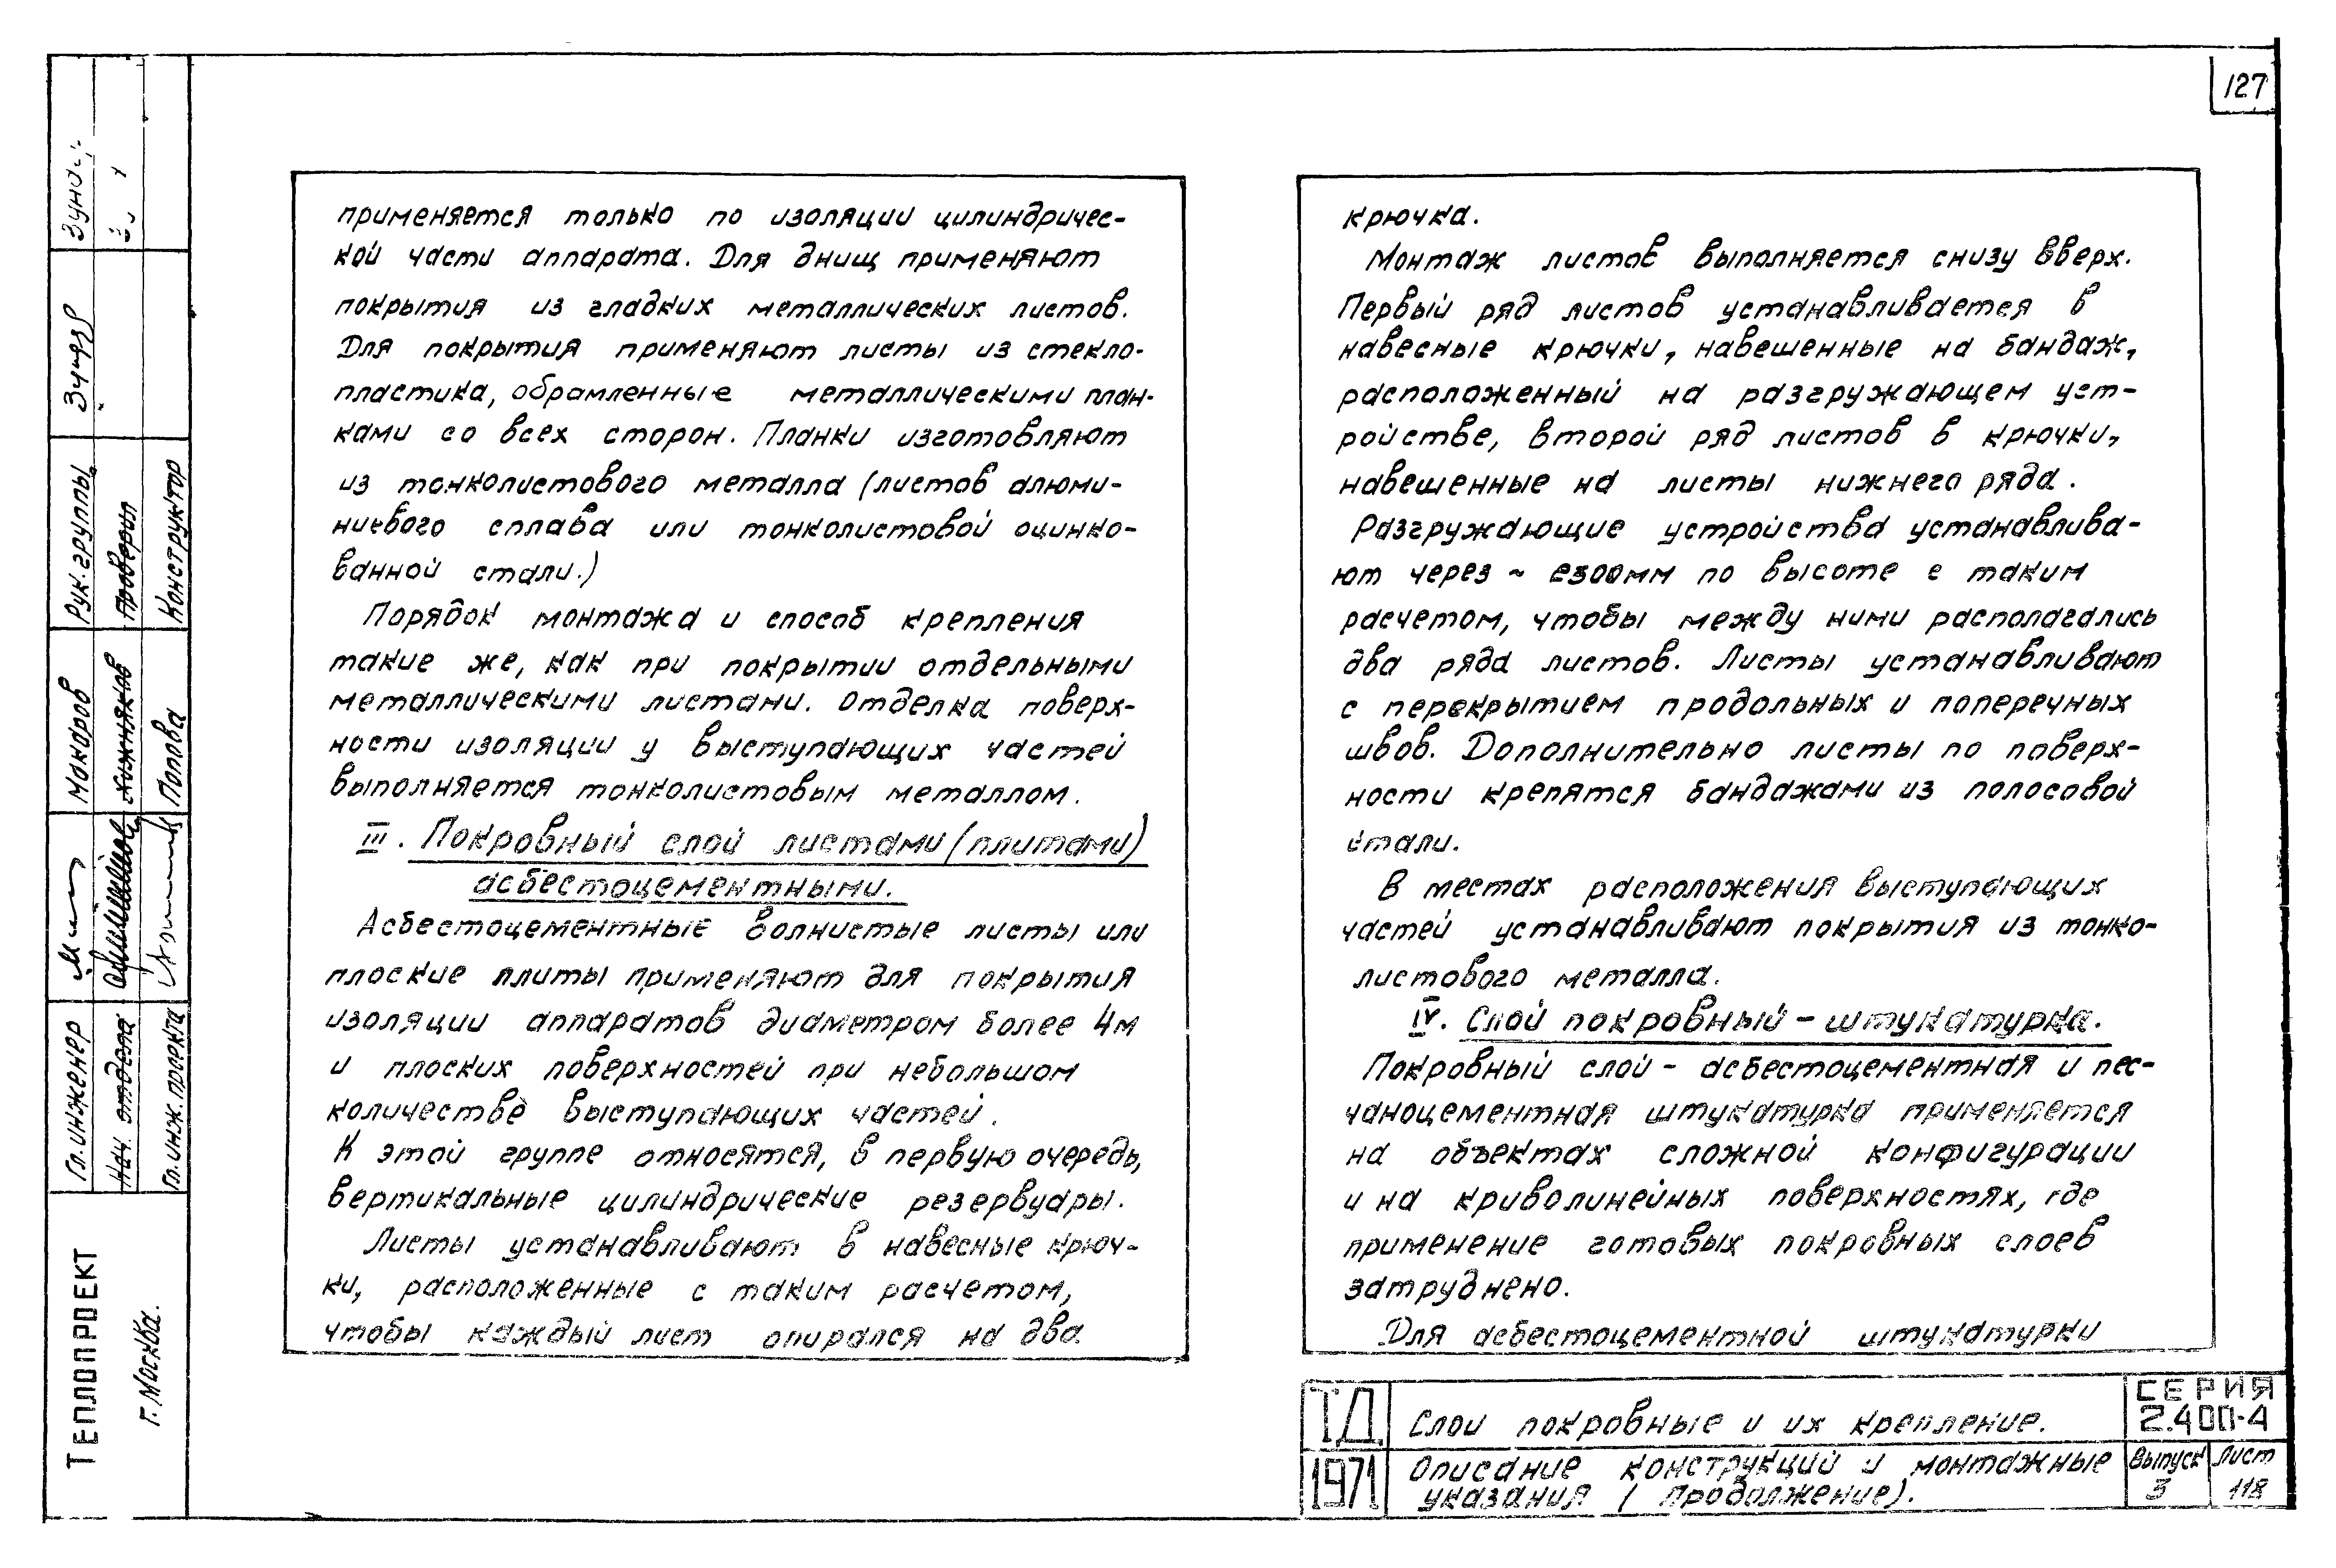 127
применяется только по изоляции цилиндричес-
кой части аппарата. Для днищ применяют
покрытия из гладких металлических листов.
Для покрытия применяют листы из стекло-
пластика, обрамленные металлическими план-
ками со всех сторон. Планки изготовляют
из тонколистового металла (листов алюми-
ниевого сплава или тонколистовой оцинко-
ванной стали.)
Порядок монтажа и способ крепления
такие же, как при покрытии отдельными
металлическими листами. Отделка поверх-
ности изоляции у выступающих частей
выполняется тонколистовым металлом.
III. Покровный слой листами (плитами)
асбестоцементными.
Асбестоцементные волнистые листы или
плоские плиты применяют для покрытия
изоляции аппаратов диаметром более 4м
и плоских поверхностей при небольшом
количестве выступающих частей.
К этой группе относятся, в первую очередь,
вертикальные цилиндрические резервуары.
Листы устанавливают в навесные крюч-
ки, расположенные с таким расчетом,
чтобы каждый лист опирался на два
крючка.
Монтаж листов выполняется снизу вверх.
Первый ряд листов устанавливается в
навесные крючки, навешенные на бандаж,
расположенный на разгружающем уст-
ройстве, второй ряд листов в крючки,
навешенные на листы нижнего ряда.
Разгружающие устройства устанавлива-
ют через ~ 2300мм по высоте с таким
расчетом, чтобы между ними располагались
два ряда листов. Листы устанавливают
с перекрытием продольных и поперечных
швов. Дополнительно листы по поверх-
ности крепятся бандажами из полосовой
стали.
В местах расположения выступающих
частей устанавливают покрытия из тонко-
листового металла.
IV. Слой покровный - штукатурка.
Покровный слой - асбестоцементная и пес-
чаноцементная штукатурка применяется
на объектах сложной конфигурации
и на криволинейных поверхностях, где
применение готовых покровных слоев
затруднено.
Для асбестоцементной штукатурки
ТД
1971
Слои покровные и их крепление.
Описание конструкций и монтажные
указания (продолжение).
СЕРИЯ
2.400-4
Выпуск Лист
3 118
Теплопроект
г. Москва.
Гл. инженер
Нач. отдела
Гл. инж. проекта
Макаров
Кожняков
Попова
Рук. группы
Проверил
Конструктор